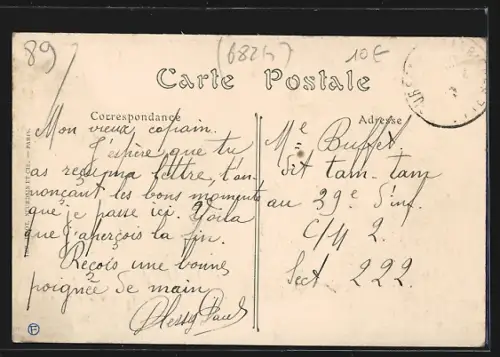 89
(6824)
10E
Carte Postale
Correspondance
Adresse
Mon vieux copain.
J'espère que tu
as reçu ma lettre t'an-
nonçant les bons moments
que je passe ici. Voila
que j'aperçois la fin.
Reçois une bonne
poignée de main
Paul
Me Buffet
dit tam-tam
au 29e d'inf.
C/M 2.
Sect. 222.
PARIS
F